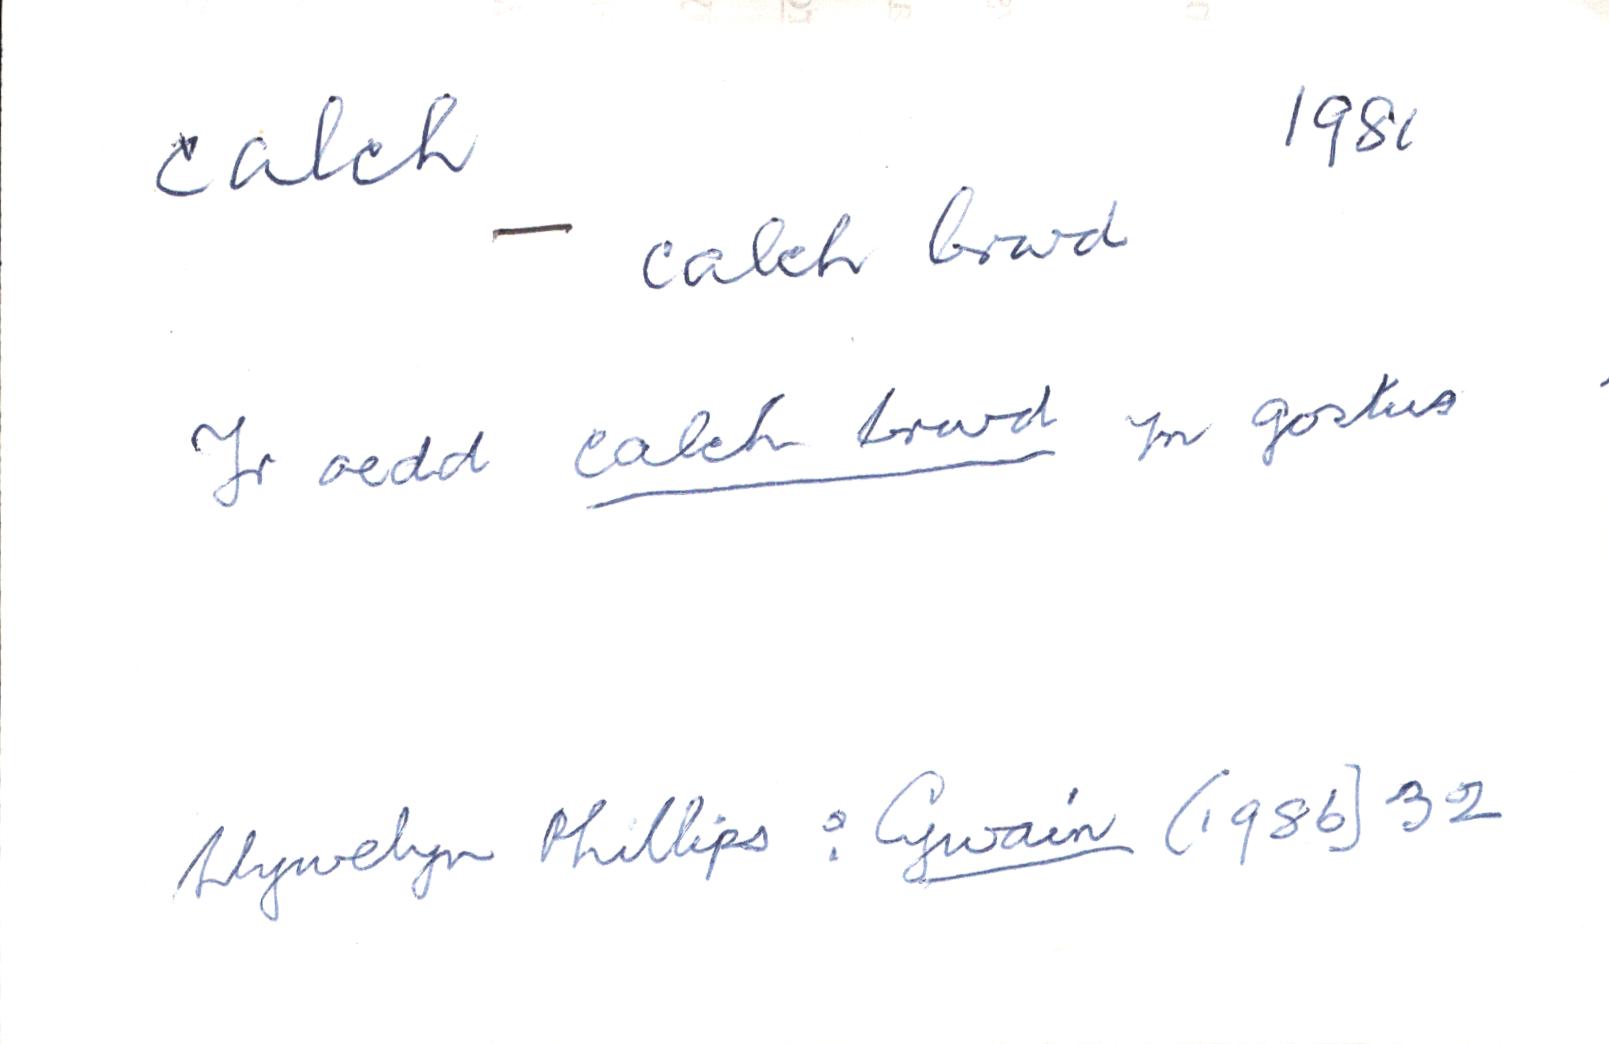 calch 1981
— calch brwd
Yr oedd calch brwd yn gostus
Llywelyn Phillips : Cywain (1986) 32